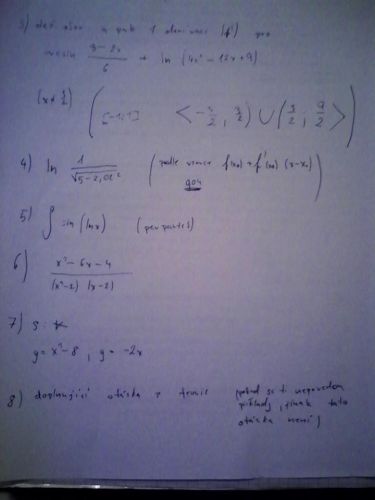 3) def. obor a pak 1 derivaci (f') pro
arcsin \frac{3-2x}{6} + ln (4x² - 12x + 9)
(x ≠ \frac{3}{2}) ( [-1;1] < -\frac{3}{2}, \frac{3}{2}) ∪ (\frac{3}{2}, \frac{9}{2} > )
4) ln \frac{1}{\sqrt{5-2,01^2}} (podle vzorce f(x₀) + f'(x₀) (x-x₀)
5) ∫ sin (ln x) (per partes)
6) \frac{x²-6x-4}{(x²-2) (x-2)}
7) S:
y = x²-8, y = -2x
8) doplnující otázka z teorie pokud se ti nepovedou
příklady, jinak tato
otázka není)